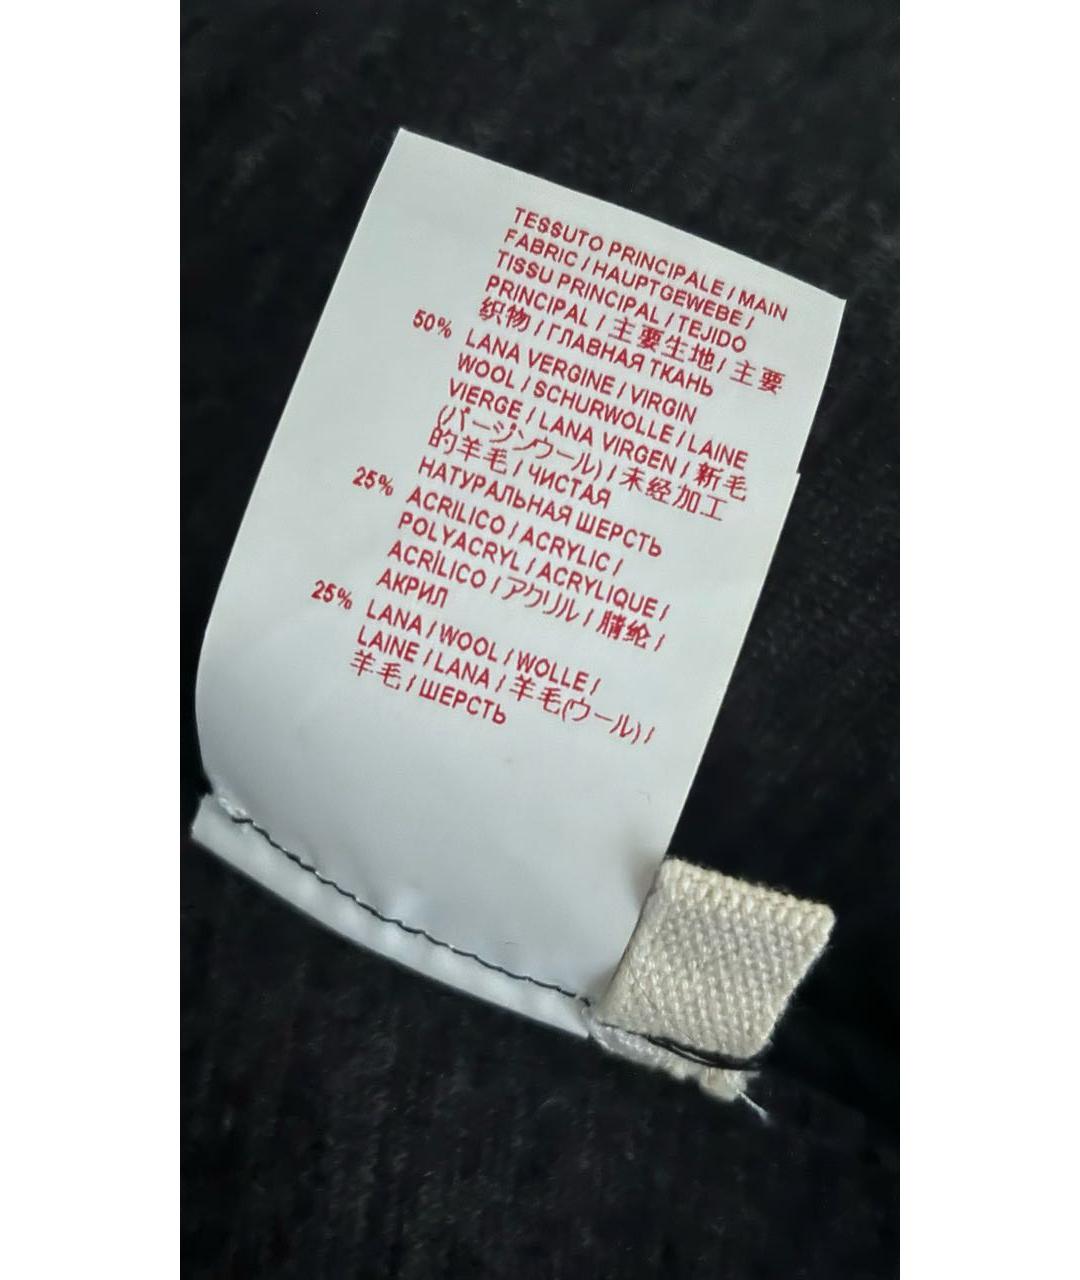 TESSUTO PRINCIPALE / MAIN
FABRIC / HAUPTGEWEBE /
TISSU PRINCIPAL / TEJIDO
PRINCIPAL / 主要生地 / 主要
织物 / ГЛАВНАЯ ТКАНЬ
50% LANA VERGINE / VIRGIN
WOOL / SCHURWOLLE / LAINE
VIERGE / LANA VIRGEN / 新毛
(バージンウール) / 未经加工
的羊毛 / ЧИСТАЯ
НАТУРАЛЬНАЯ ШЕРСТЬ
25% ACRILICO / ACRYLIC /
POLYACRYL / ACRYLIQUE /
ACRÍLICO / アクリル / 腈纶 /
АКРИЛ
25% LANA / WOOL / WOLLE /
LAINE / LANA / 羊毛(ウール) /
羊毛 / ШЕРСТЬ